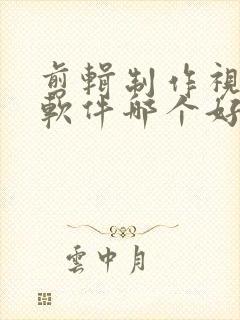 剪輯制作視
軟件哪个好
雲中月